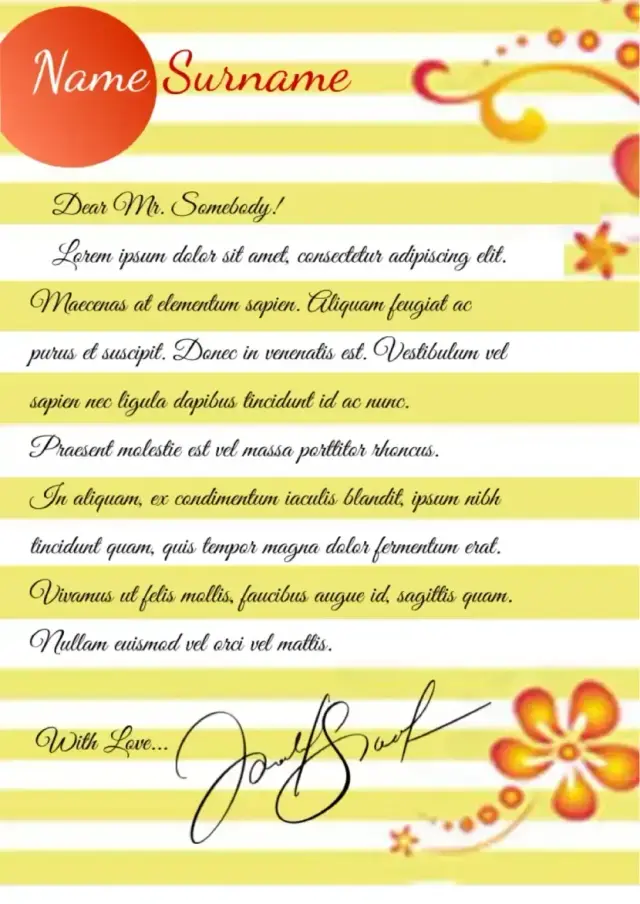 Name Surname
Dear Mr. Somebody!
Lorem ipsum dolor sit amet, consectetur adipiscing elit.
Maecenas at elementum sapien. Aliquam feugiat ac
purus et suscipit. Donec in venenatis est. Vestibulum vel
sapien nec ligula dapibus tincidunt id ac nunc.
Praesent molestie est vel massa porttitor rhoncus.
In aliquam, ex condimentum iaculis blandit, ipsum nibh
tincidunt quam, quis tempor magna dolor fermentum erat.
Vivamus ut felis mollis, faucibus augue id, sagittis quam.
Nullam euismod vel orci vel mattis.
With Love...